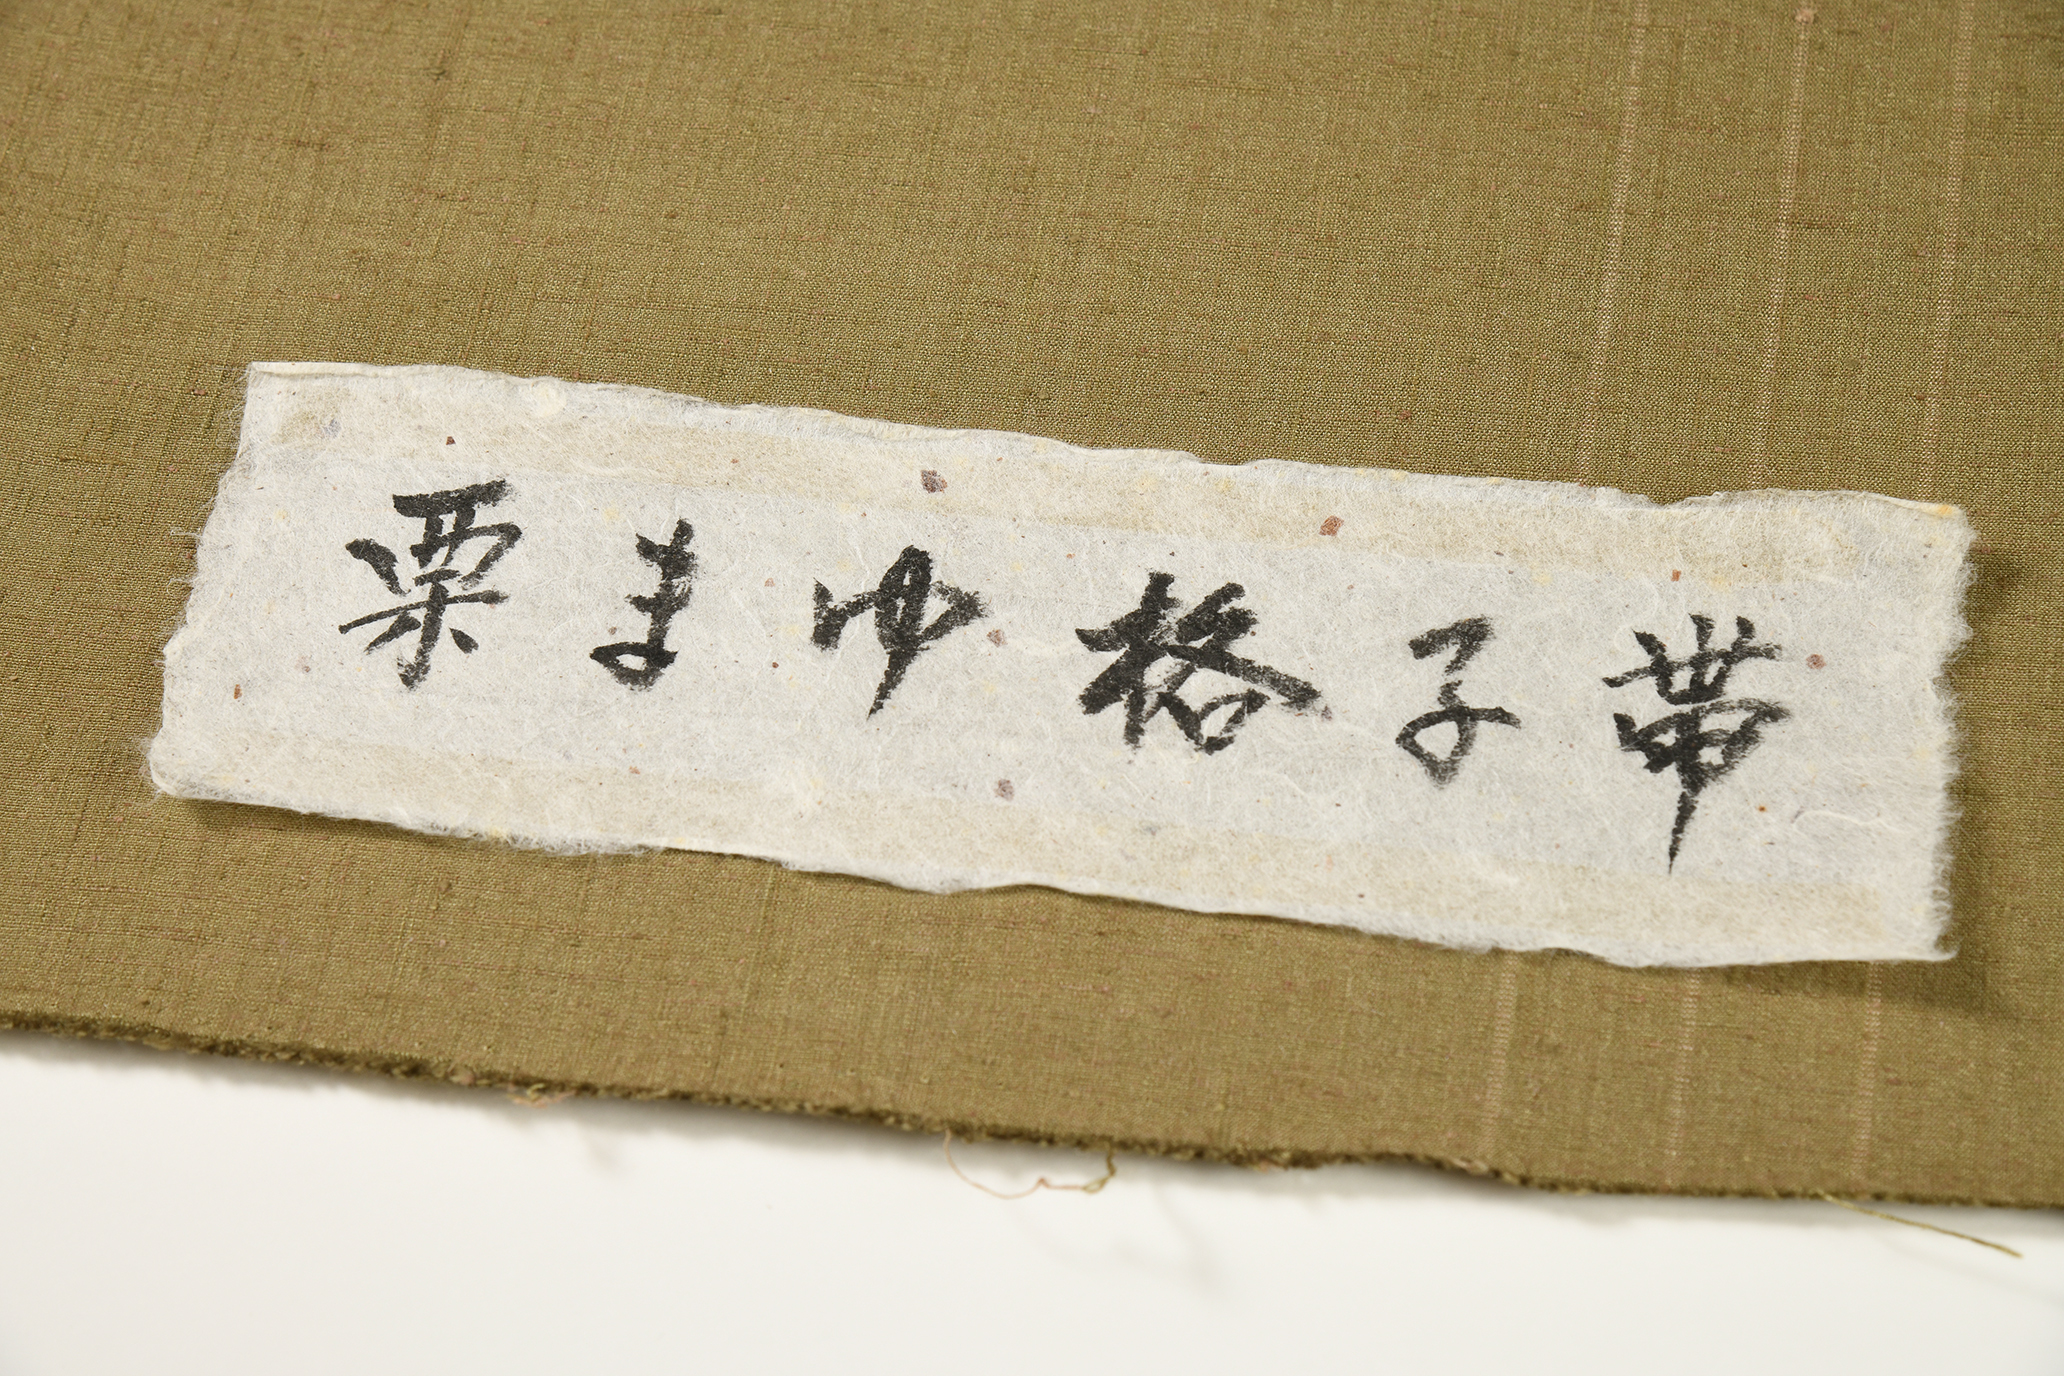 栗まゆ格子帯